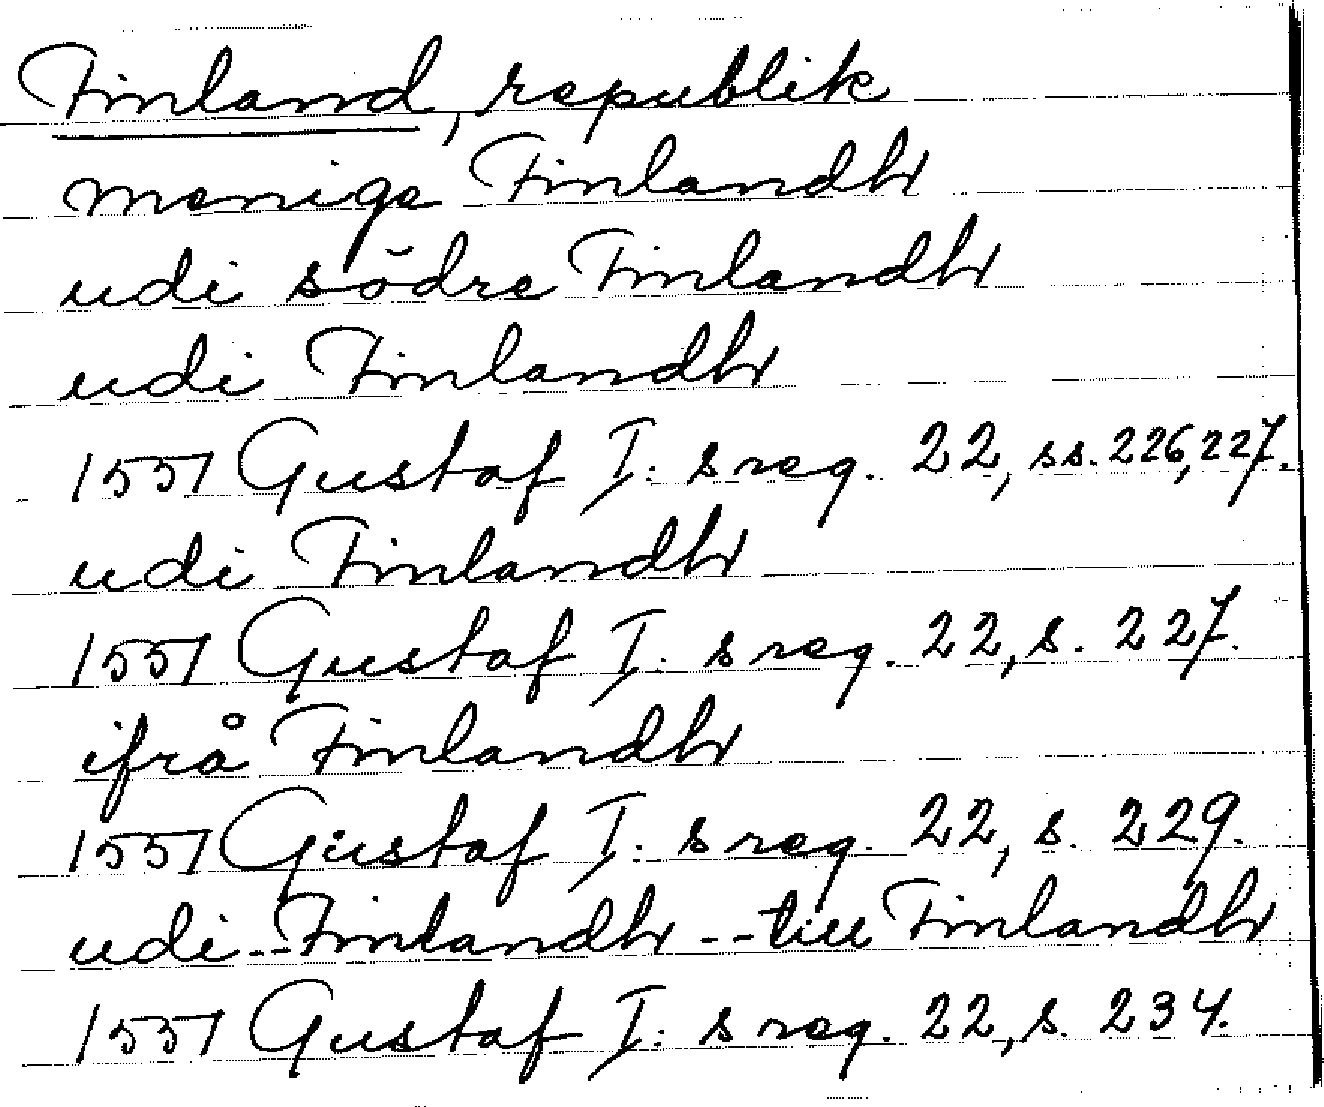 Finland, republik
menige Finlandh
udi södre Finlandh
udi Finlandh
1551 Gustaf I:s reg. 22, ss. 226, 227.
udi Finlandh
1551 Gustaf I:s reg. 22, s. 227.
ifrå Finlandh
1551 Gustaf I:s reg. 22, s. 229.
udi -- Finlandh -- till Finlandh
1551 Gustaf I:s reg. 22, s. 234.